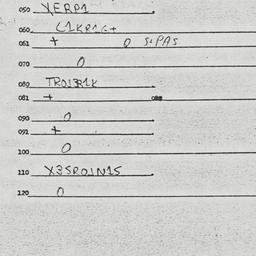 050 XERP1
060 C1KR1G+
061 + 0 S&PAS
070 0
080 TR0J3R1K
081 +
090 0
091 +
100 0
110 X3SR0JN15
120 0